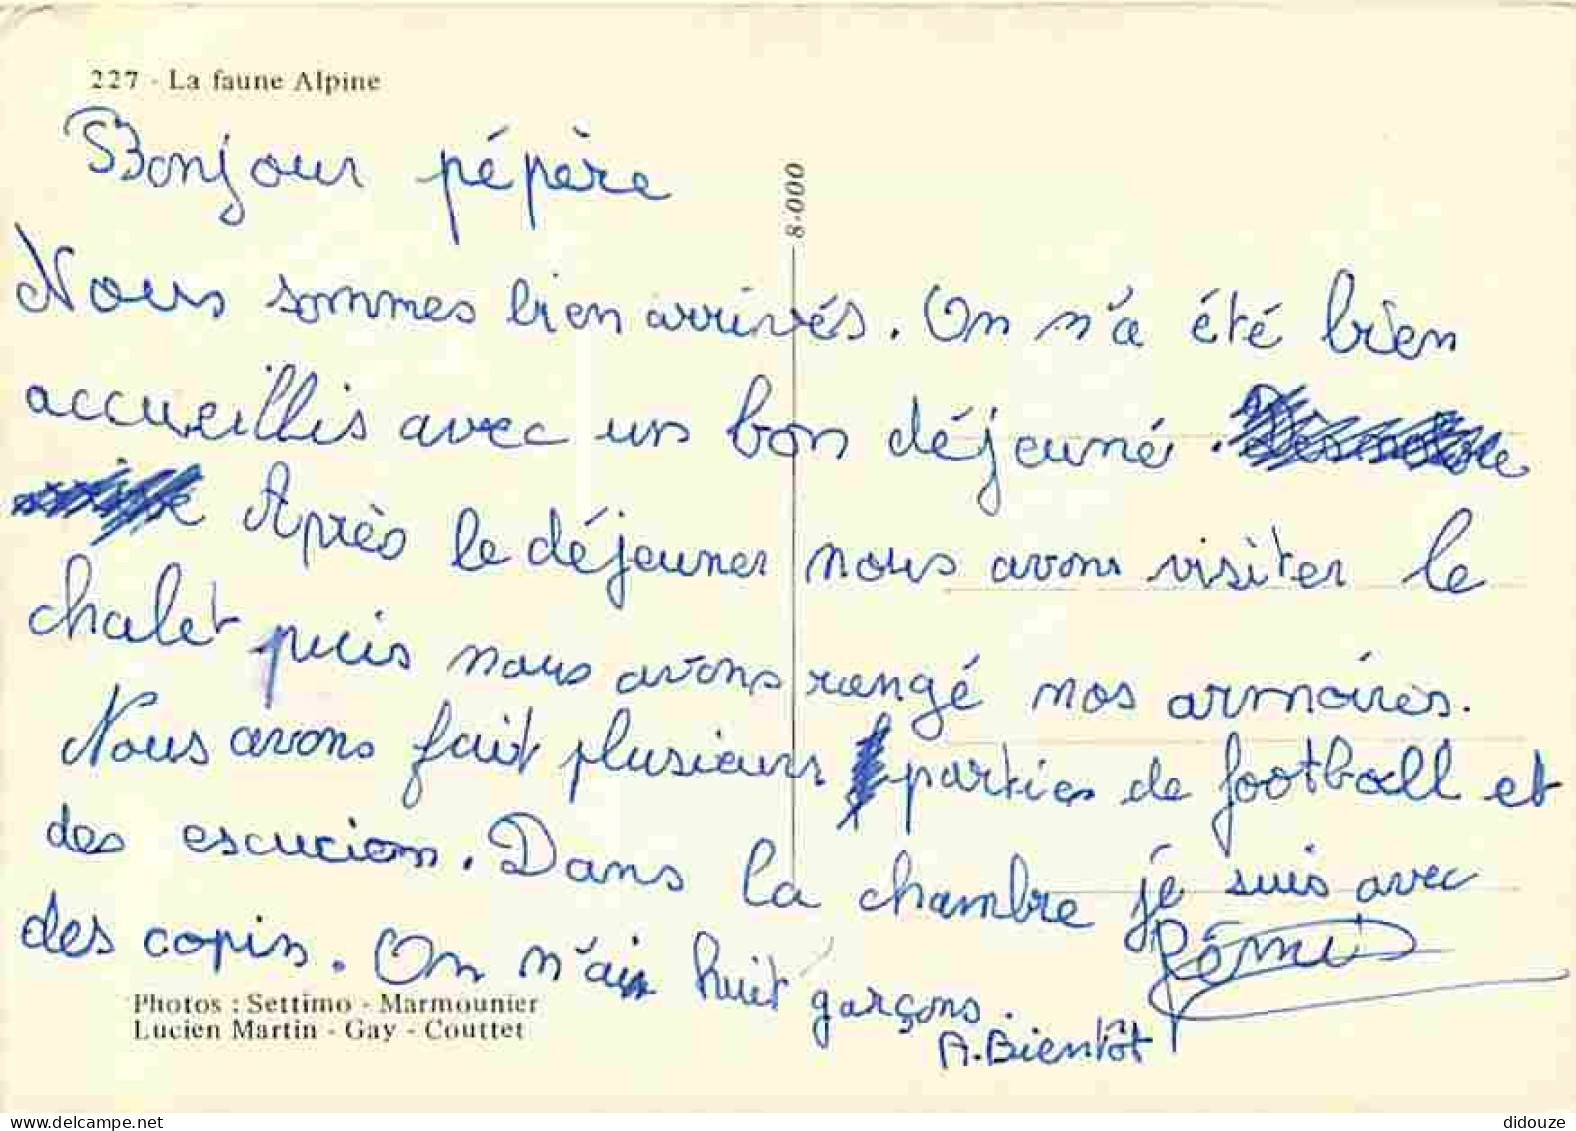 227 - La faune Alpine
Bonjour pépère
8.000
Nous sommes bien arrivés. On n'a été bien
accueillis avec un bon déjeuné.
Après le déjeuner nous avons visiter le
chalet puis nous avons rangé nos armoires.
Nous avons fait plusieurs parties de football et
des escucions. Dans la chambre je suis avec
des copins. On n'ais huit garçons.
Rémi
A. Bientôt
Photos : Settimo - Marmounier
Lucien Martin - Gay - Couttet
delcampe.net
didouze